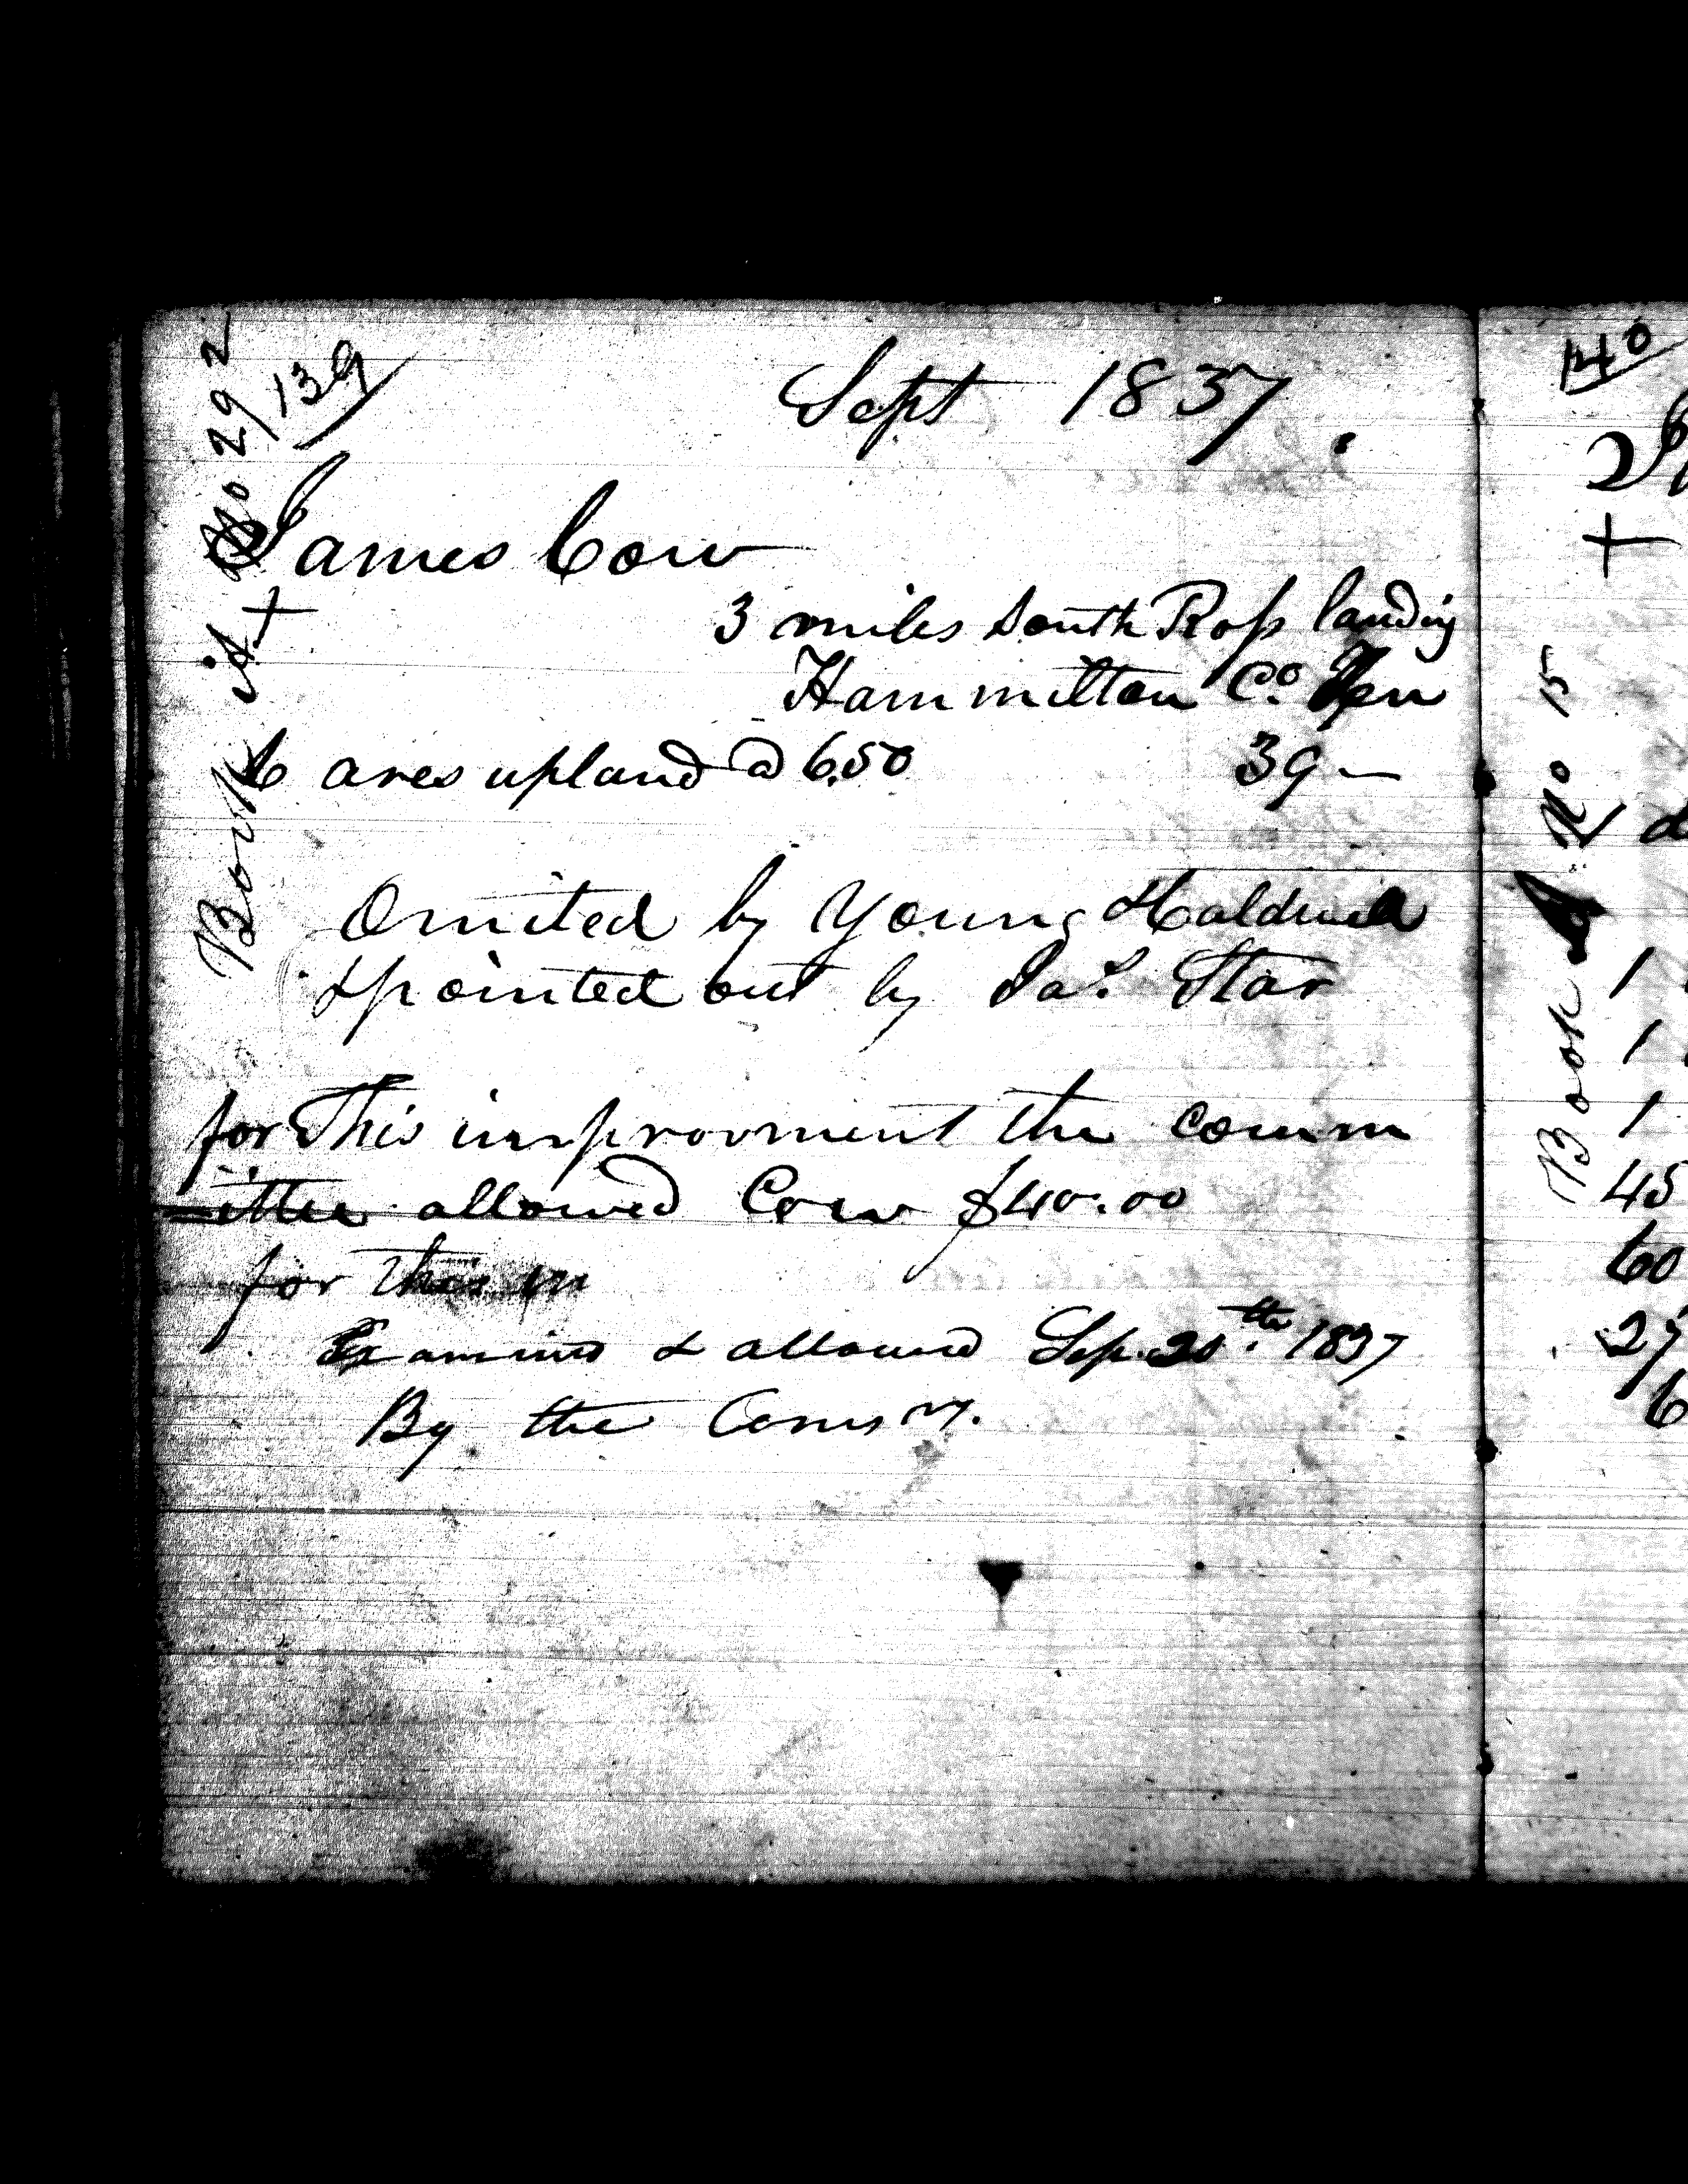 139
Sept 1837.
Book A No 292
James Cow
+
3 miles South Ross landing
Hammilton Co. Ten
6 acres upland @ 6.50 39 —
Omited by Young &
& pointed out by Jas. Star
for This improovment the comm
=ittee allowed Cow $40.00
for this im
Examined & allowed Sep. 20th. 1837
By the Comsrs.
140
+
Book A No 15
1
1
1
45
60
27
6